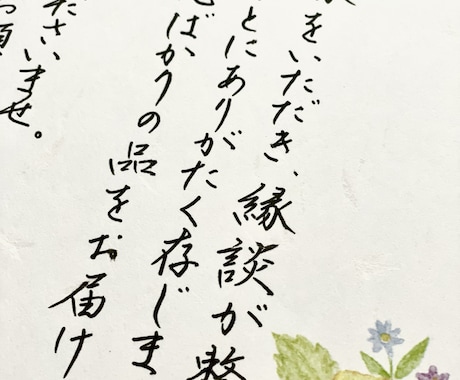 をいただき、縁談が整
とにありがたく存じま
ばかりの品をお届け
ださいませ。
お願